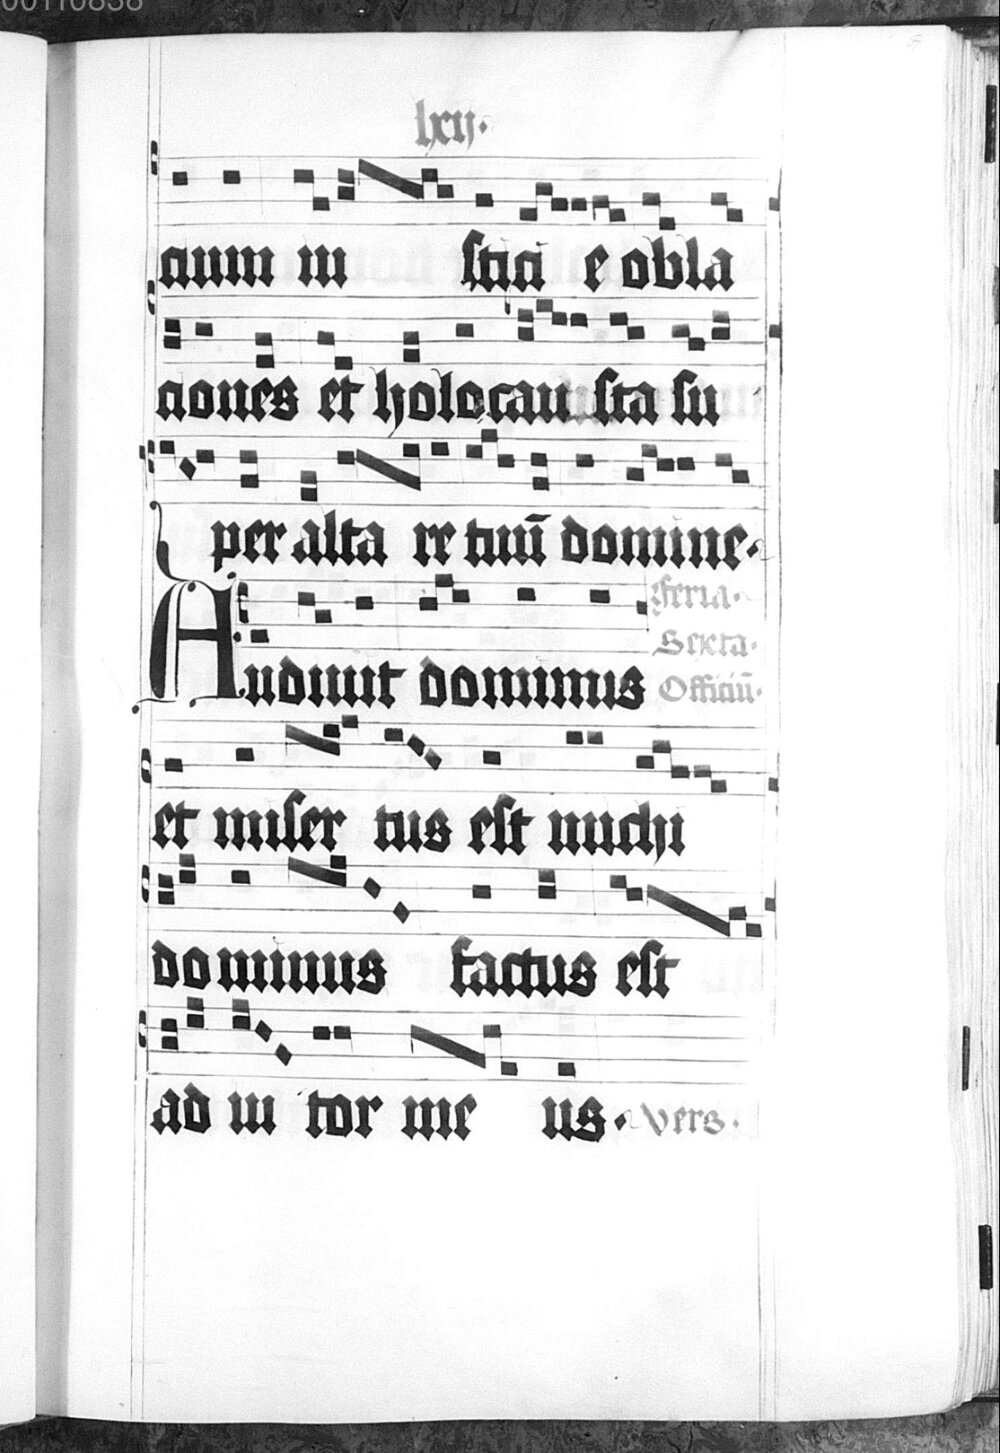 00110838
lxij·
cium iu sticie obla
ciones et holocau sta su
per alta re tuū domine·
feria·
Sexta·
Audiuit dominus Officiū·
et miser tus est michi
dominus factus est
ad iu tor me us· vers·